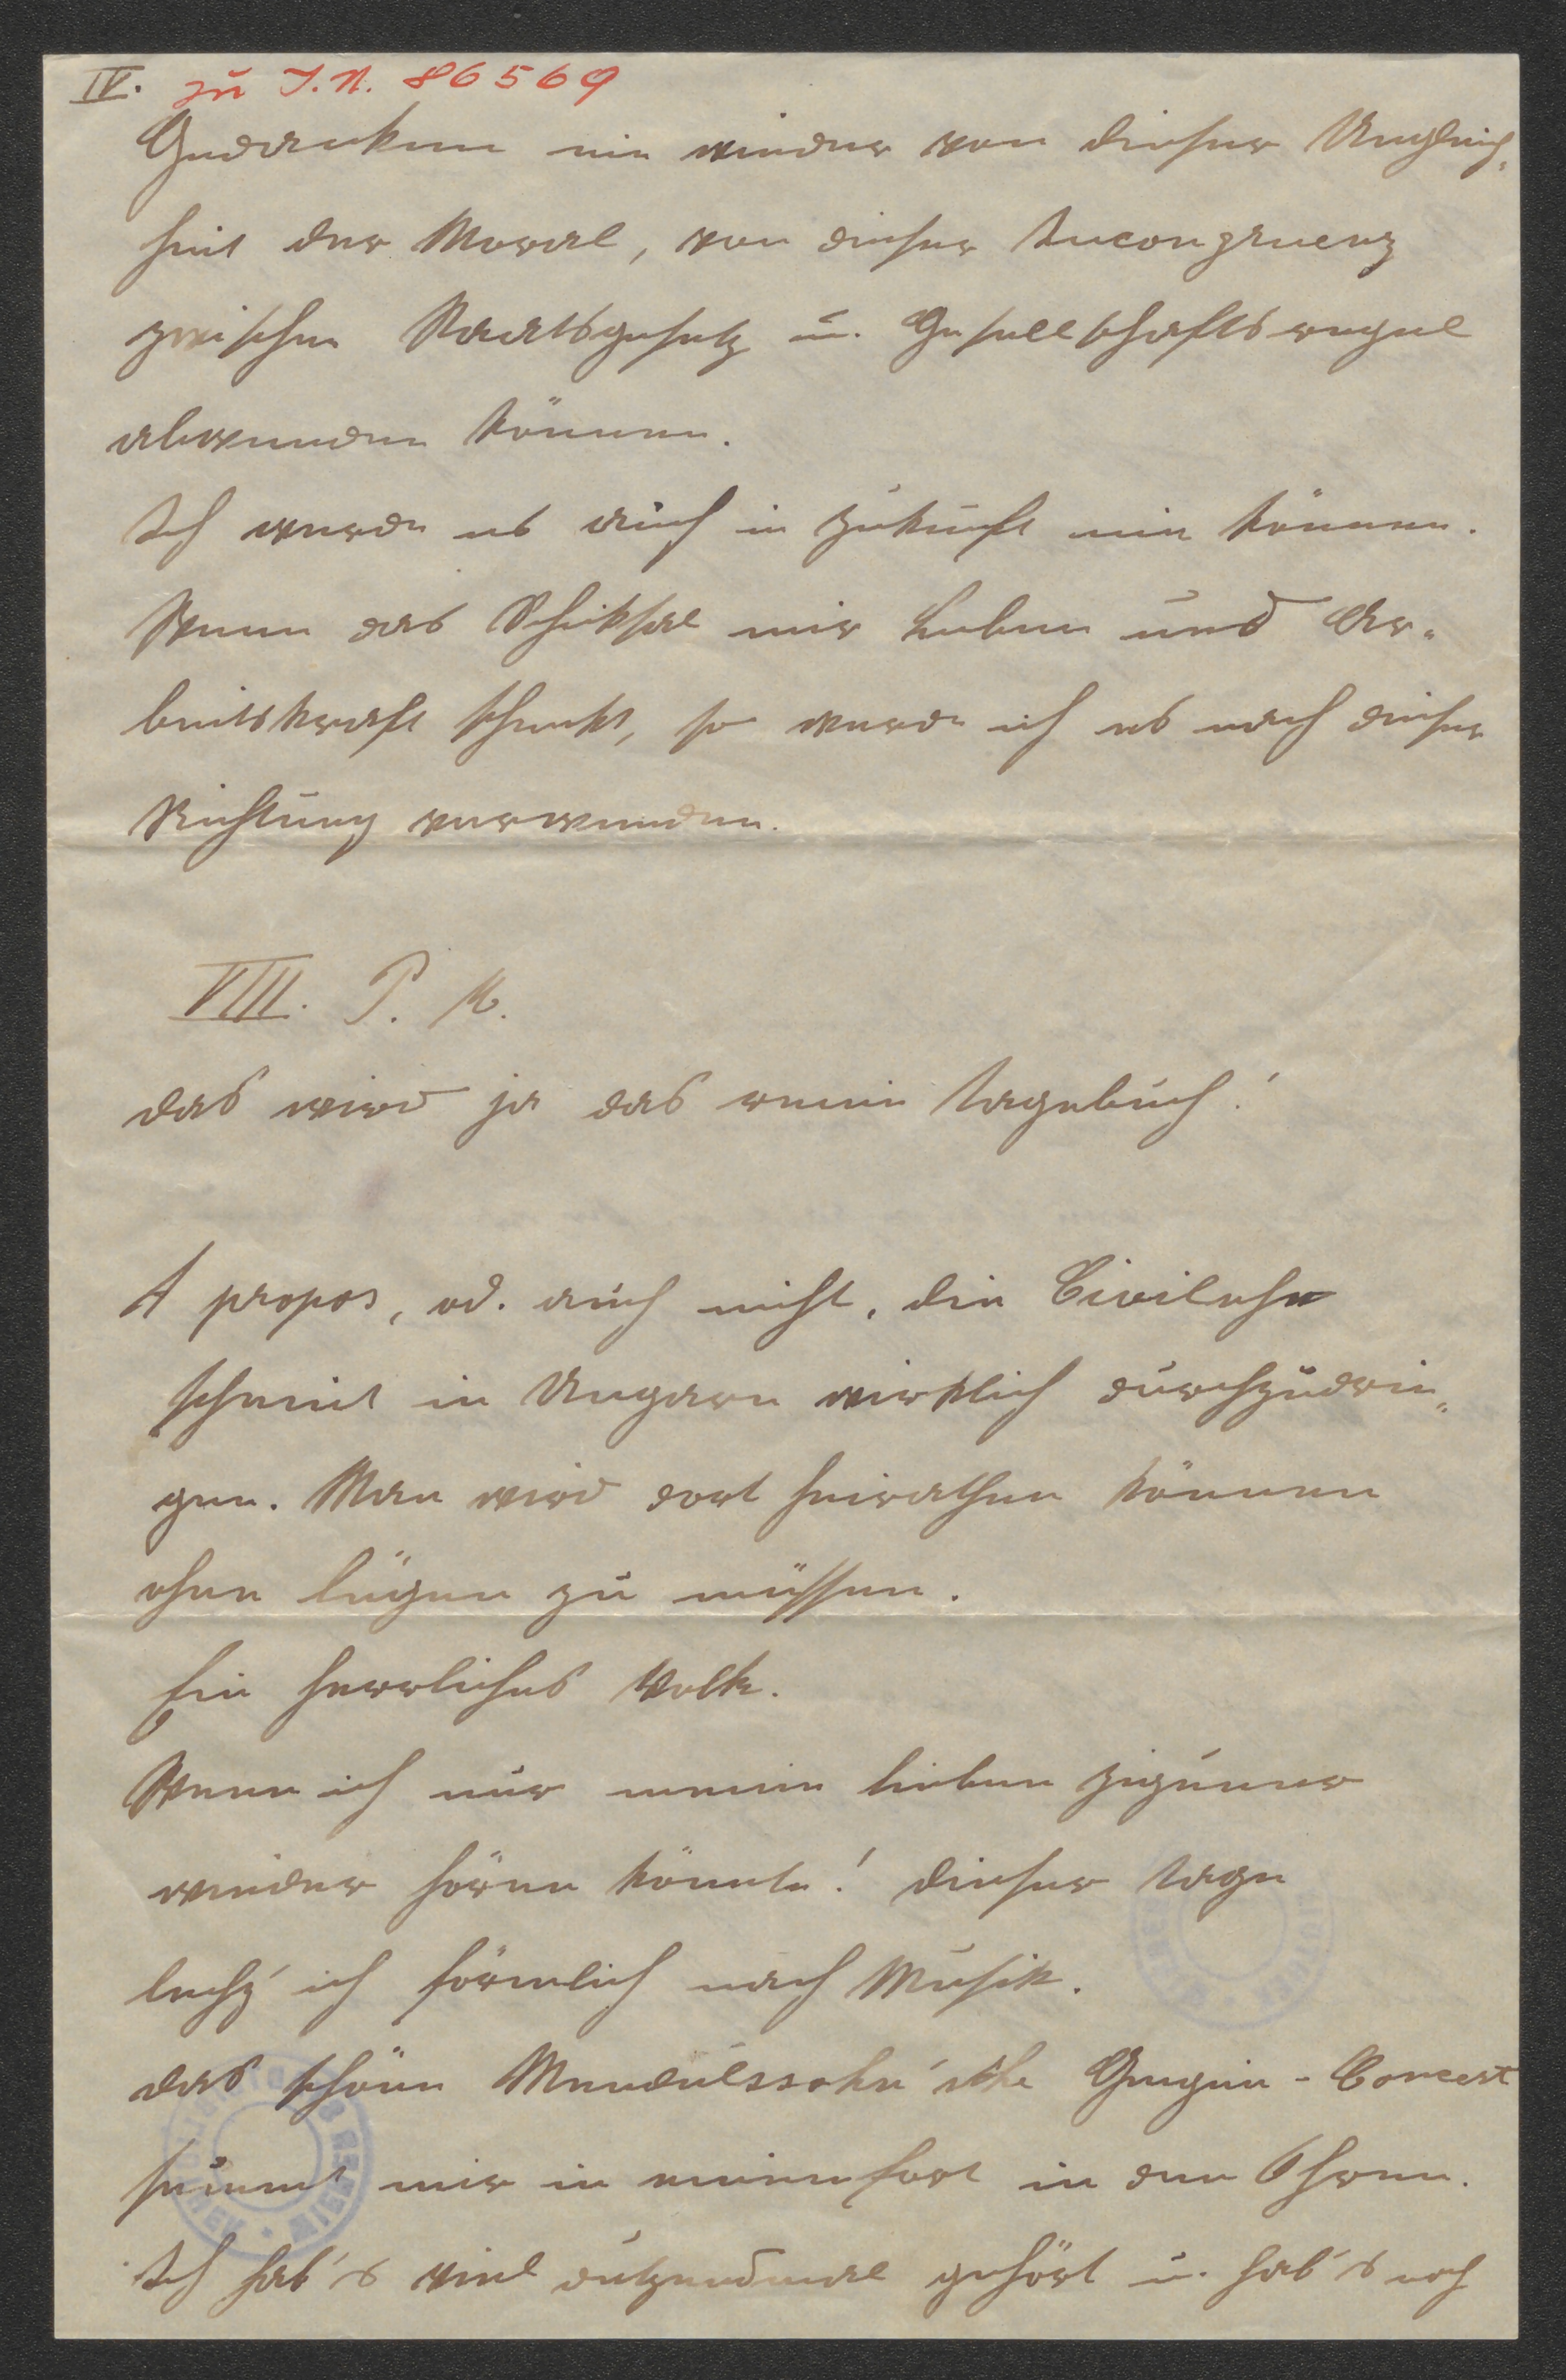 IV. zu I.N. 86569
Gedanken nie wieder von dieser Ungleich-
heit der Moral, von dieser Incongruenz
zwischen Staatsgesetz u. Gesellschaftsregel
abwenden können.
Ich werde es auch in Zukunft nie können.
Wenn das Schiksal mir Leben und Ar-
beitskraft schenkt, so werde ich es nach dieser
Richtung verwenden.
VIII. P. M.
das wird ja das reine Tagebuch!
A propos, od. auch nicht, die Civilehe
scheint in Ungarn wirklich durchzudrin-
gen. Man wird dort heirathen können
ohne lügen zu müssen.
Ein herrliches Volk.
Wenn ich nur meine lieben Zigeuner
wieder hören könnte! dieser Tage
lechz' ich förmlich nach Musik.
das schöne Mendelssohn'sche Geigen-Concert
summt mir in einem fort in den Ohren.
Ich hab's viel dutzendmal gehört u. hab's noch